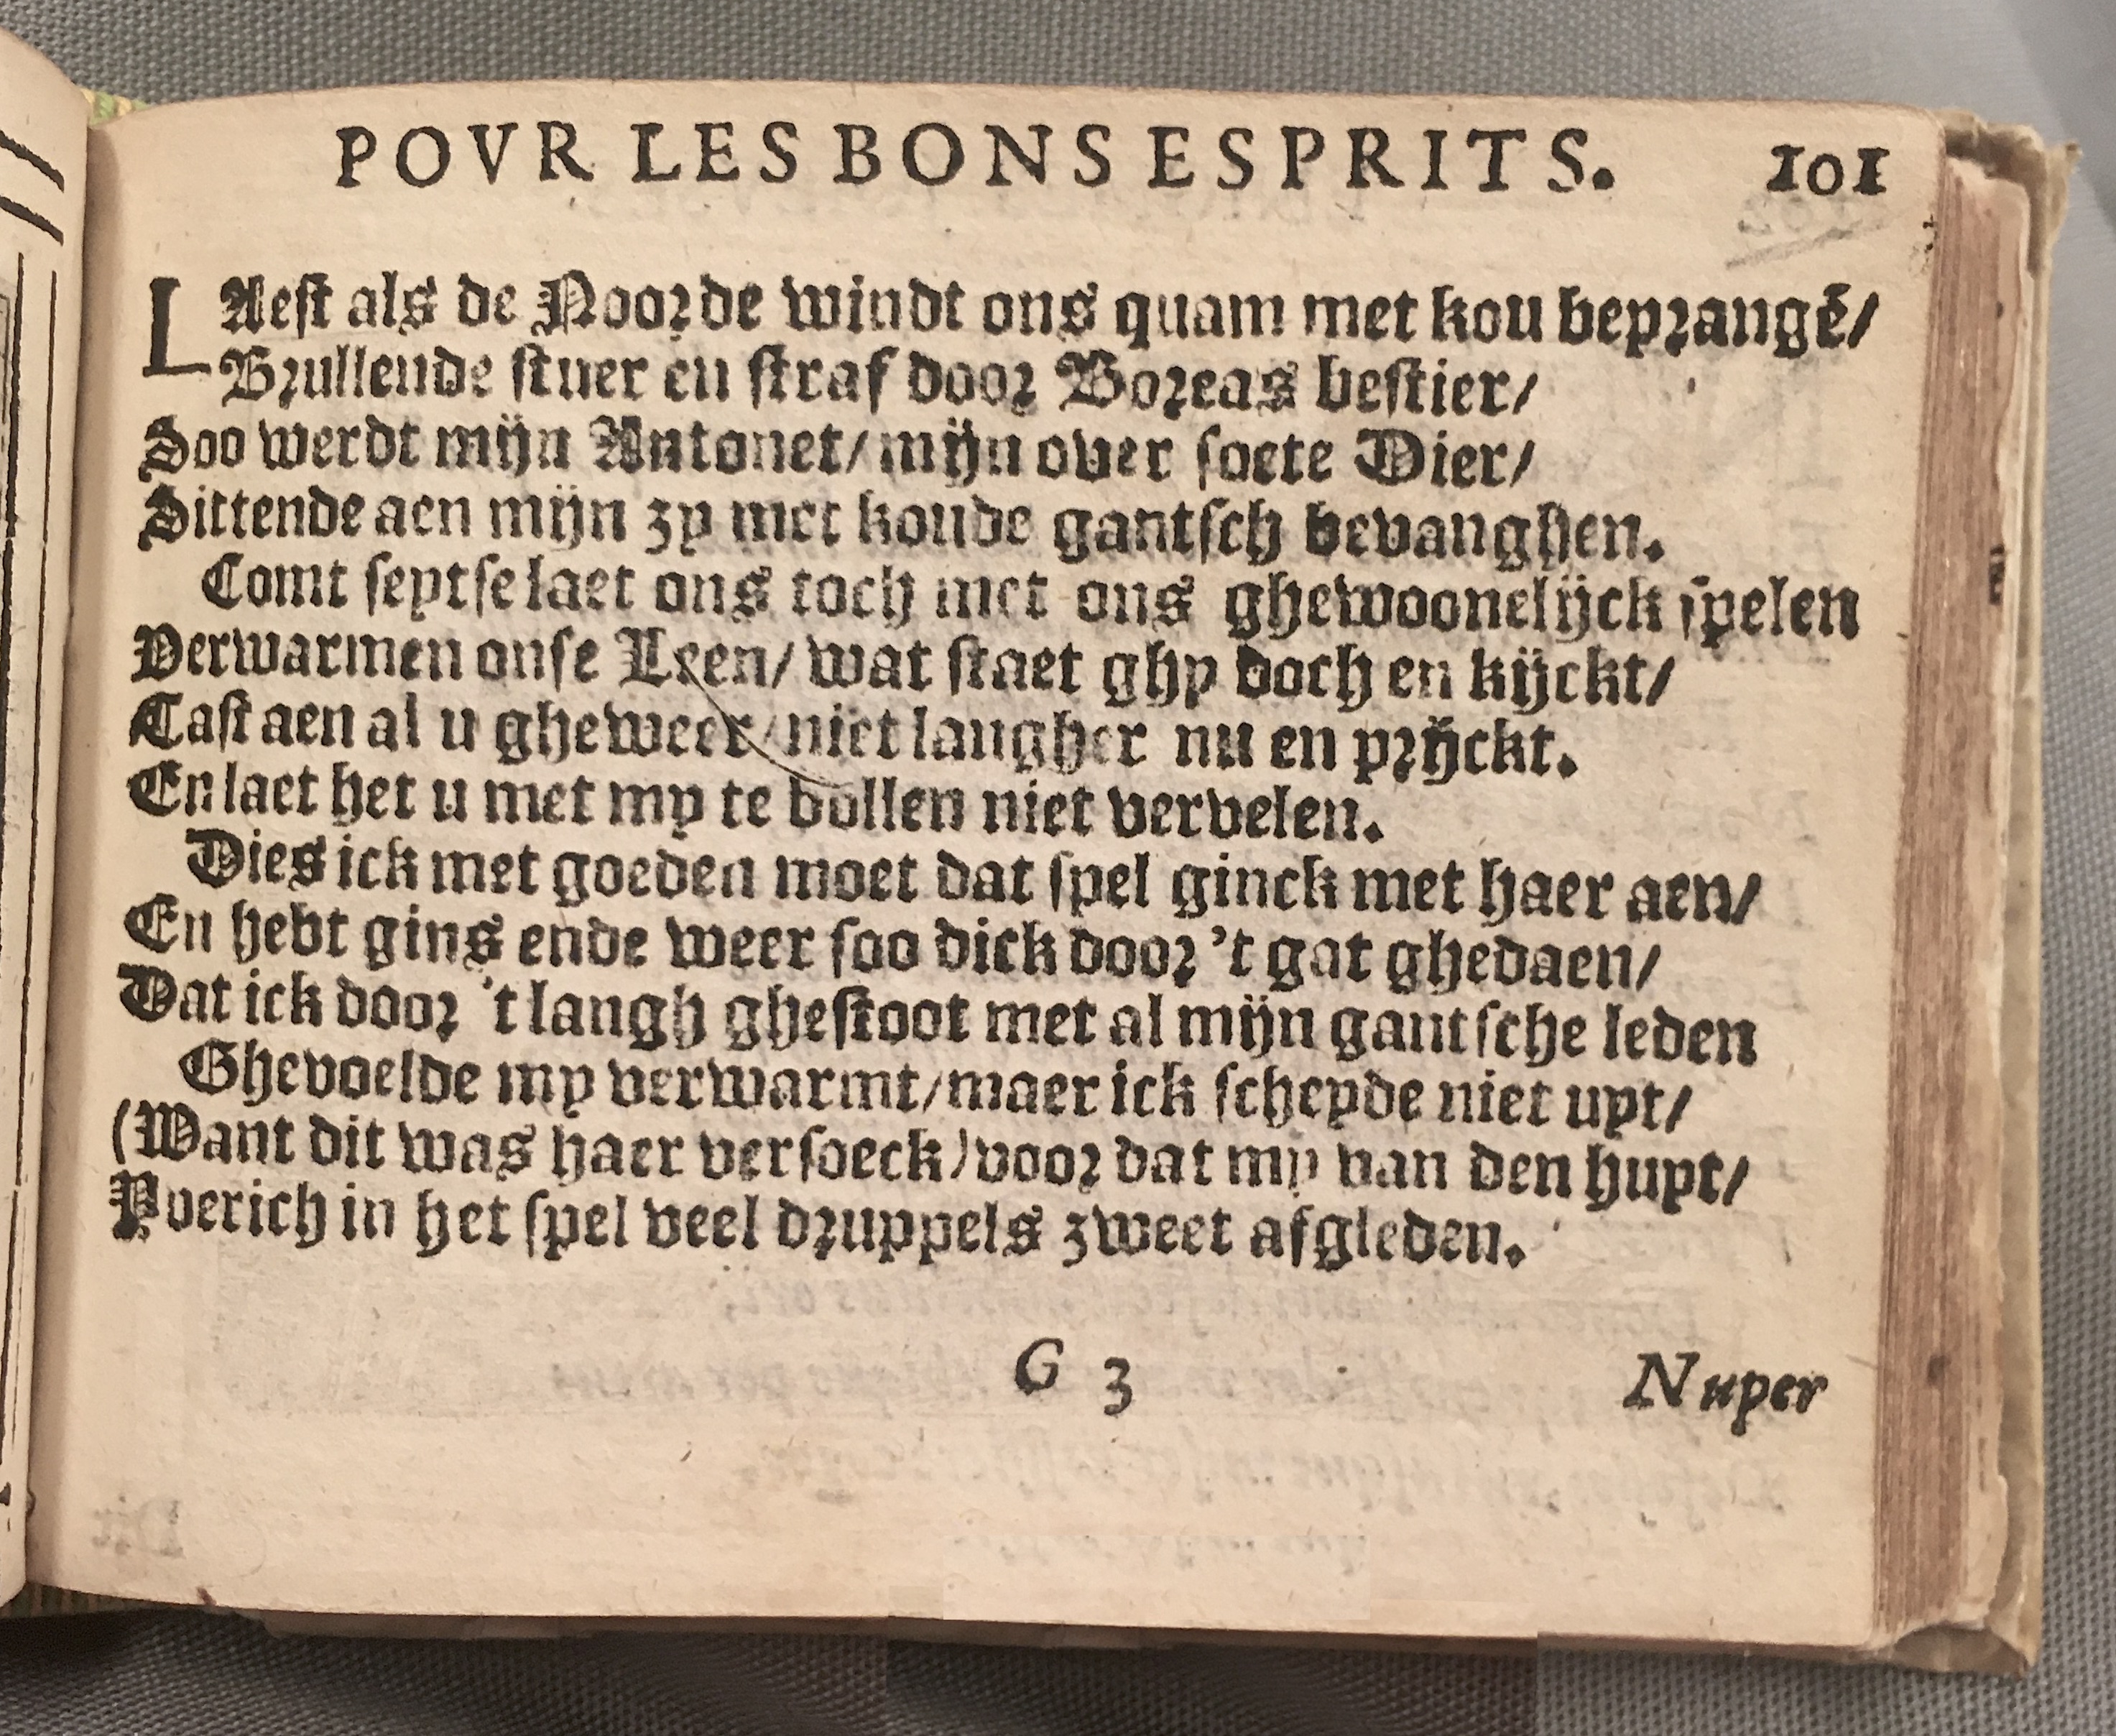 POVR LES BONS ESPRITS. 101
LAest als de Noorde windt ons quam met kou beprangẽ/
Brullende stuer en straf door Boreas bestier/
Soo werdt mijn Antonet/mijn over soete Dier/
Sittende aen mijn zy met koude gantsch bevanghen.
Comt seytse laet ons toch met ons ghewoonelijck spelen
Verwarmen onse Leen/ wat staet ghy doch en kijckt/
Tast aen al u gheweer/niet langher nu en prijckt.
En laet het u met my te dollen niet vervelen.
Dies ick met goeden moet dat spel ginck met haer aen/
En hebt gins ende weer soo dick door 't gat ghedaen/
Dat ick door 't langh ghestoot met al mijn gantsche leden
Ghevoelde my verwarmt/maer ick scheyde niet uyt/
(Want dit was haer versoeck)voor dat my van den huyt/
Yverich in het spel veel druppels zweet afgleden.
G 3 Nuper